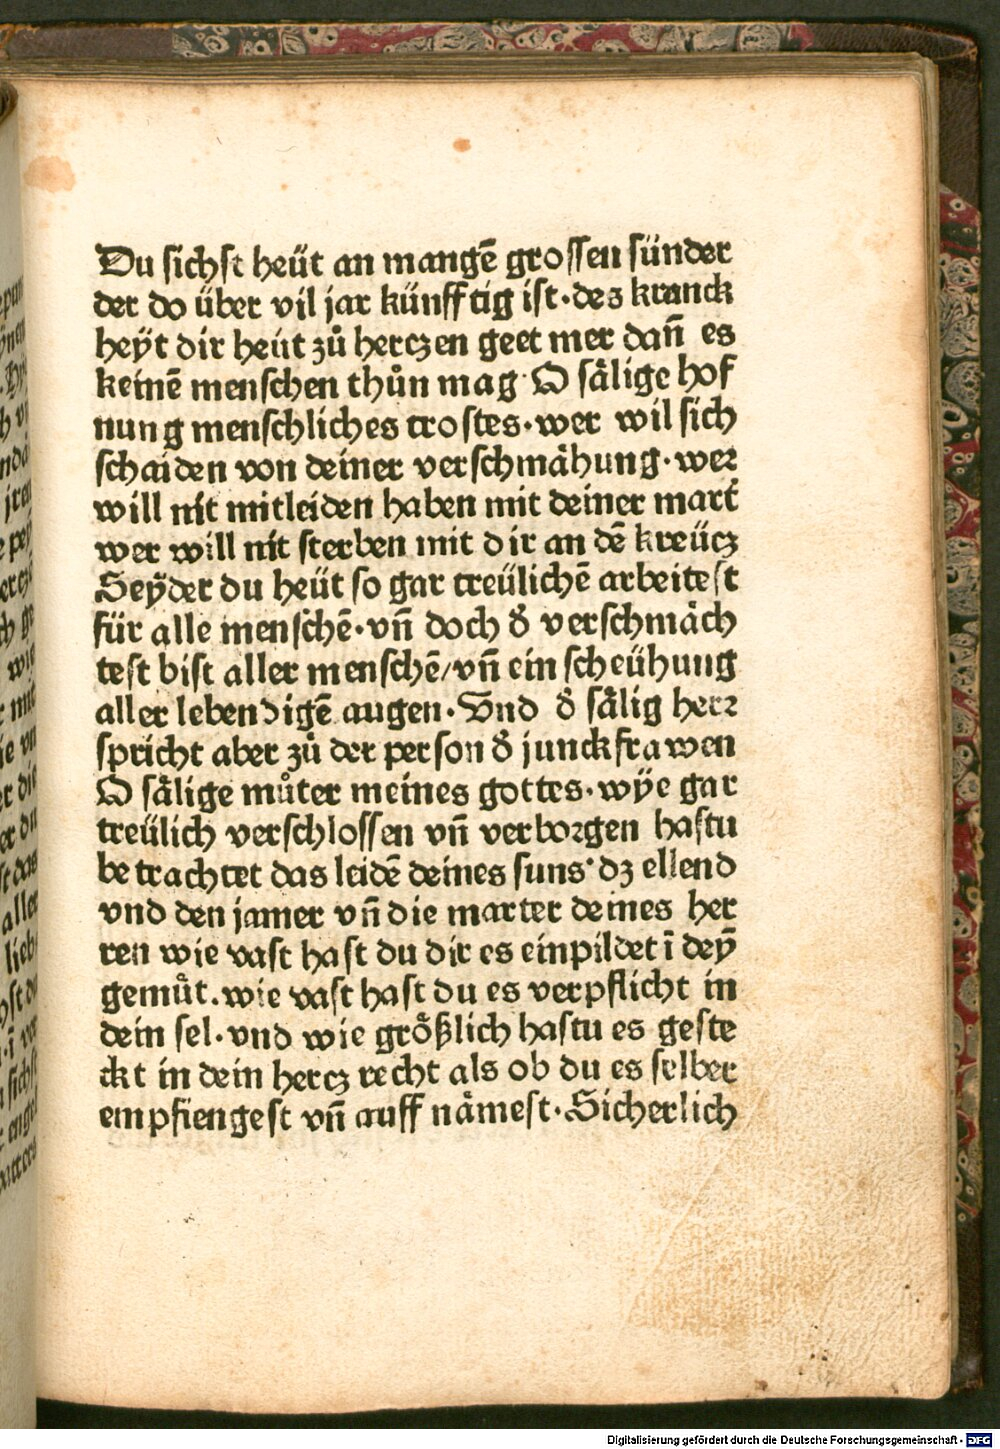 Du sichſt heüt an mangē groſſen ſünder
der do über vil jar künfftig iſt·des kranck
heÿt dir heüt zů herczen geet mer dañ es
keinē menſchen thůn mag·O ſälige hof
nung menſchliches troſtes·wer wil ſich
ſchaiden von deiner verſchmähung·wer
will nit mitleiden haben mit deiner mart̄
wer will nit ſterben mit dir an dē kreücz
Seÿder du heüt ſo gar treülichē arbeiteſt
für alle menſchē·vñ doch d̄ verſchmäch
teſt biſt aller menſchē/vñ ein ſcheühung
aller lebendigē augen·Vnd d̄ ſälig herr
ſpricht aber zů der perſon d̄ junckfrawen
O ſälige můter meines gottes·wÿe gar
treülich verſchloſſen vñ verborgen haſtu
betrachtet das leidē deines ſuns·dz ellend
vnd den jamer vñ die marter deines her
ren wie vaſt haſt du dir es einpildet ī deȳ
gemüt.wie vaſt haſt du es verpflicht in
dein ſel·vnd wie größlich haſtu es geſte
ckt in dein hercz recht als ob du es ſelber
empfiengeſt vñ auff nämeſt·Sicherlich
Digitalisierung gefördert durch die Deutsche Forschungsgemeinschaft - DFG